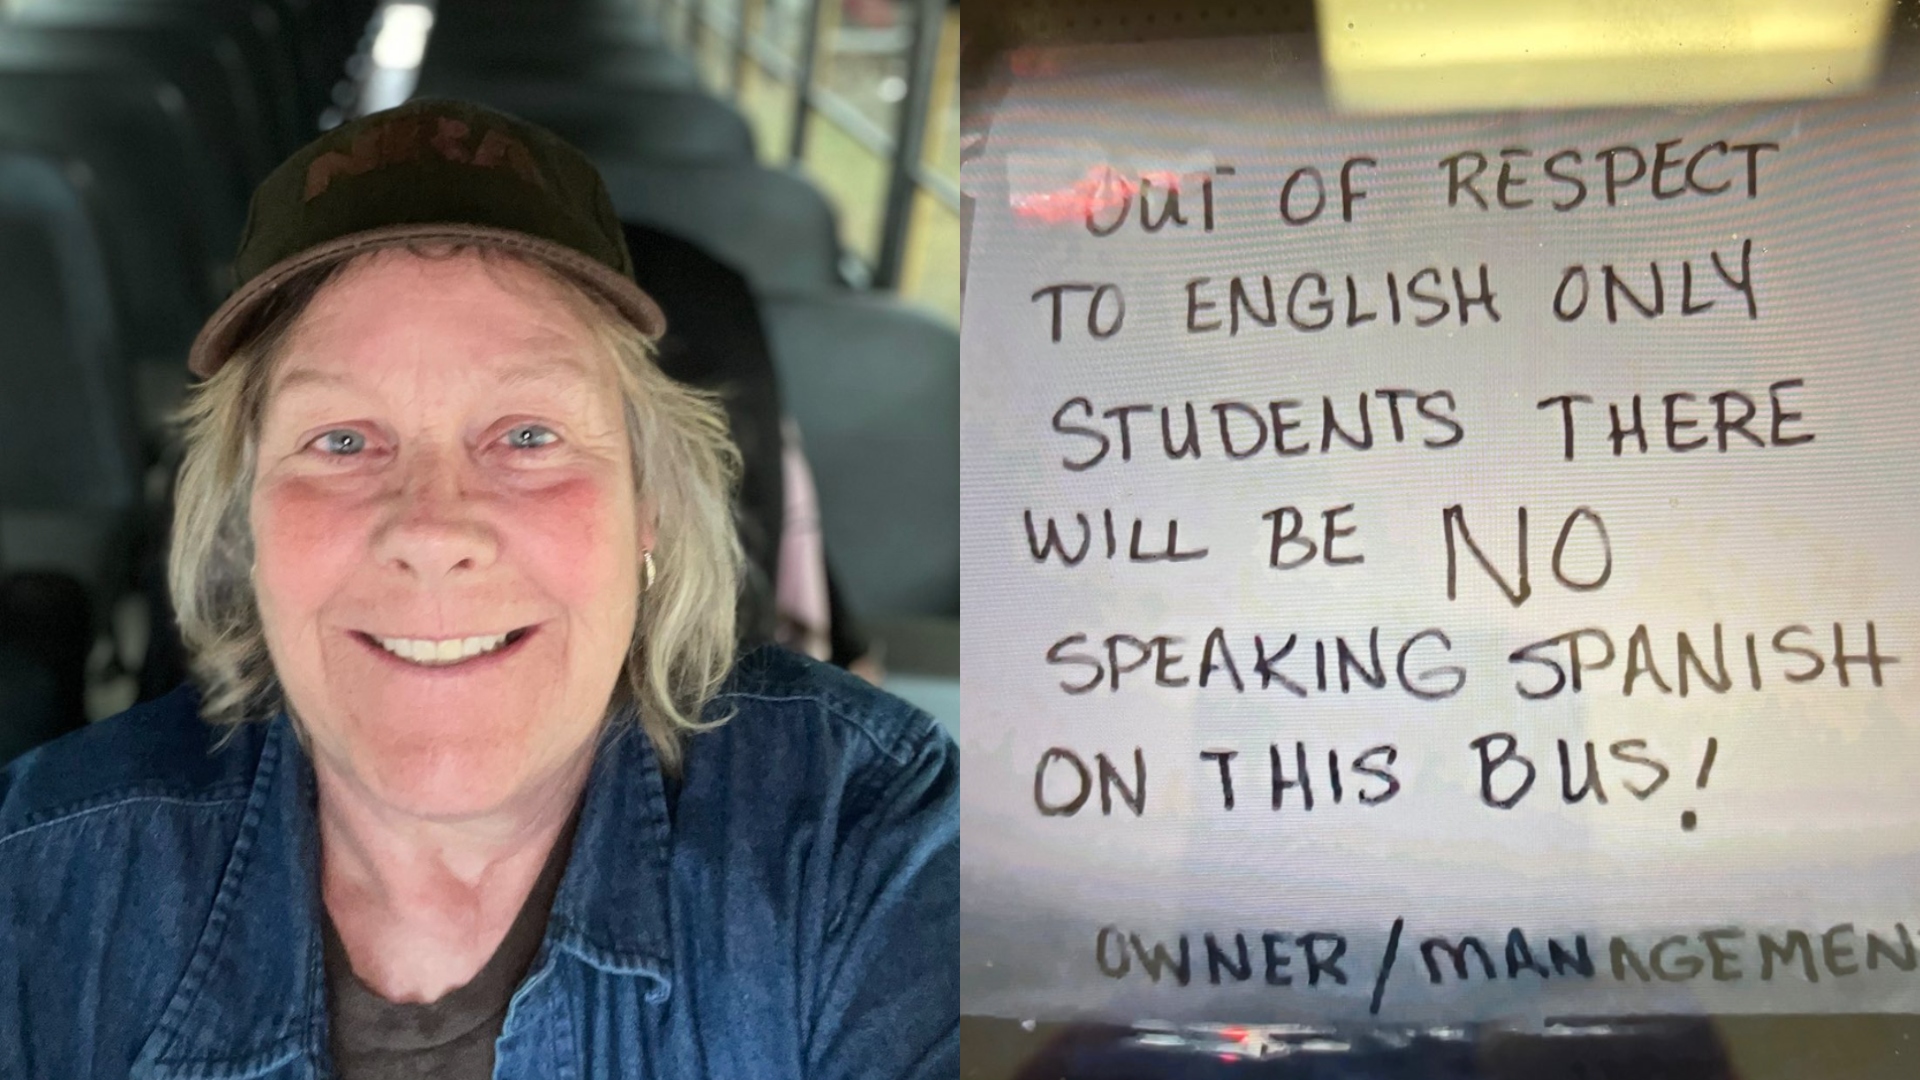 OUT OF RESPECT
TO ENGLISH ONLY
STUDENTS THERE
WILL BE NO
SPEAKING SPANISH
ON THIS BUS!
OWNER/MANAGEMENT